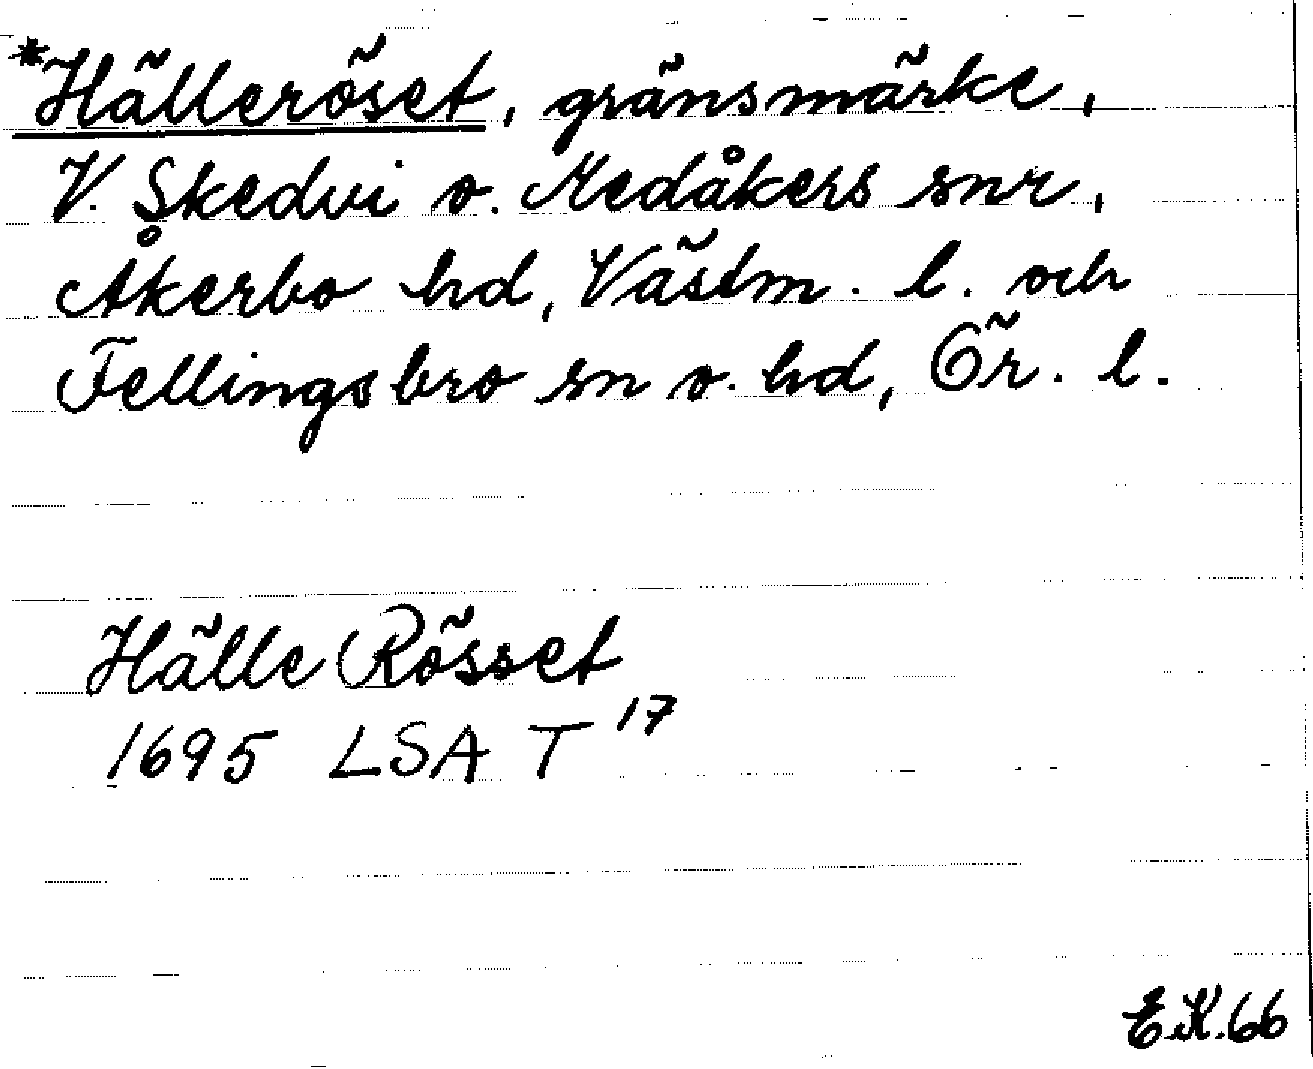 *Hälleröset, gränsmärke,
V. Skedvi o. Medåkers snr,
Åkerbo hd, Västm. l. och
Fellingsbro sn o. hd, Ör. l.
Hälle Rösset
1695 LSA T 17
E.K. 66